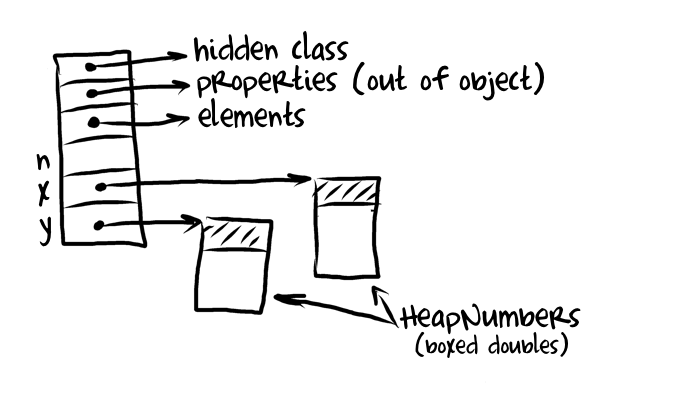 hidden class
properties (out of object)
elements
n
x
y
HeapNumbers
(boxed doubles)